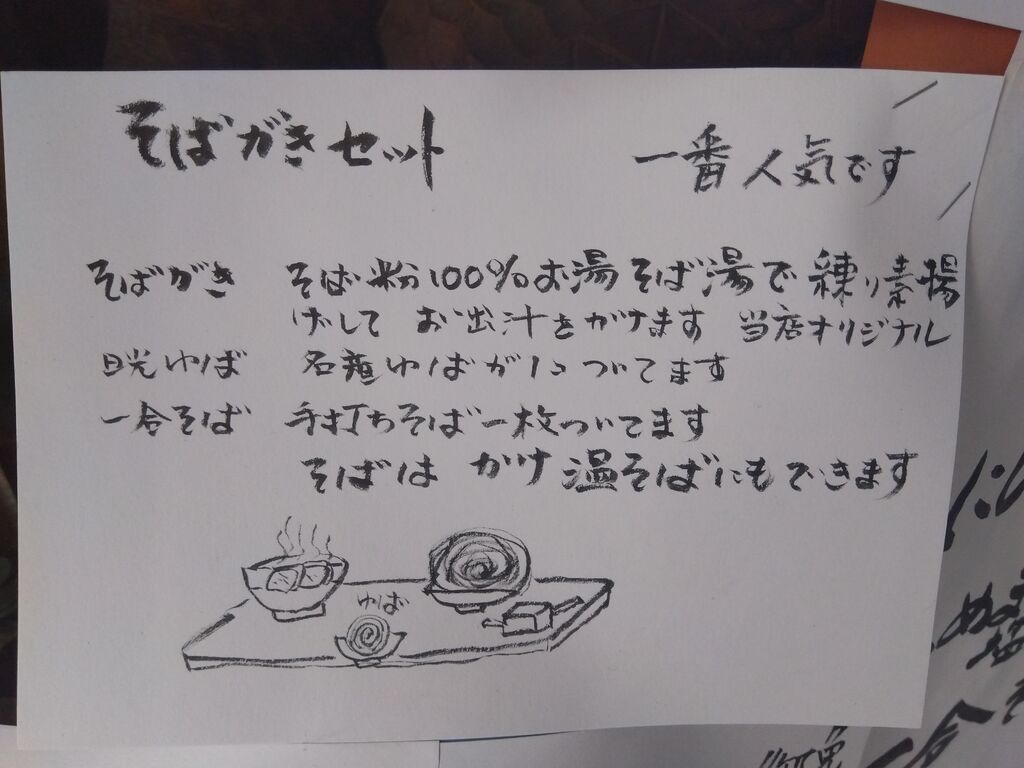 そばがきセット 一番人気です
そばがき そば粉100%お湯そば湯で練り素揚
げして お出汁をかけます 当店オリジナル
日光ゆば 名産ゆばが1コついてます
一合そば 手打ちそば一枚ついてます
そばは かけ温そばにもできます
ゆば